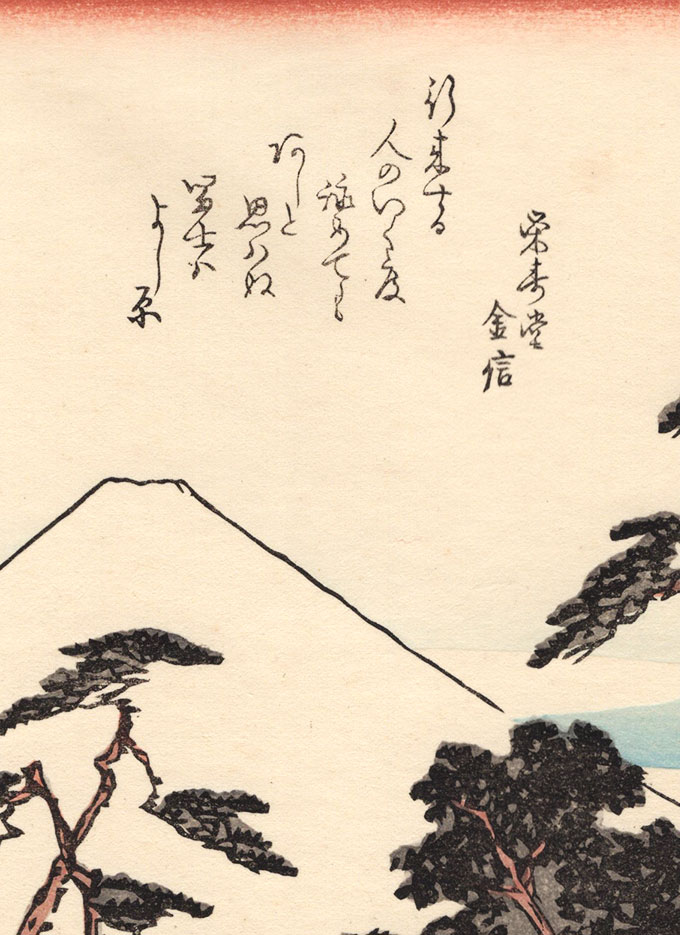 栄寿堂
金信
行来する
人のいく度
詠めても
あしと
思はぬ
冨士か
よし原